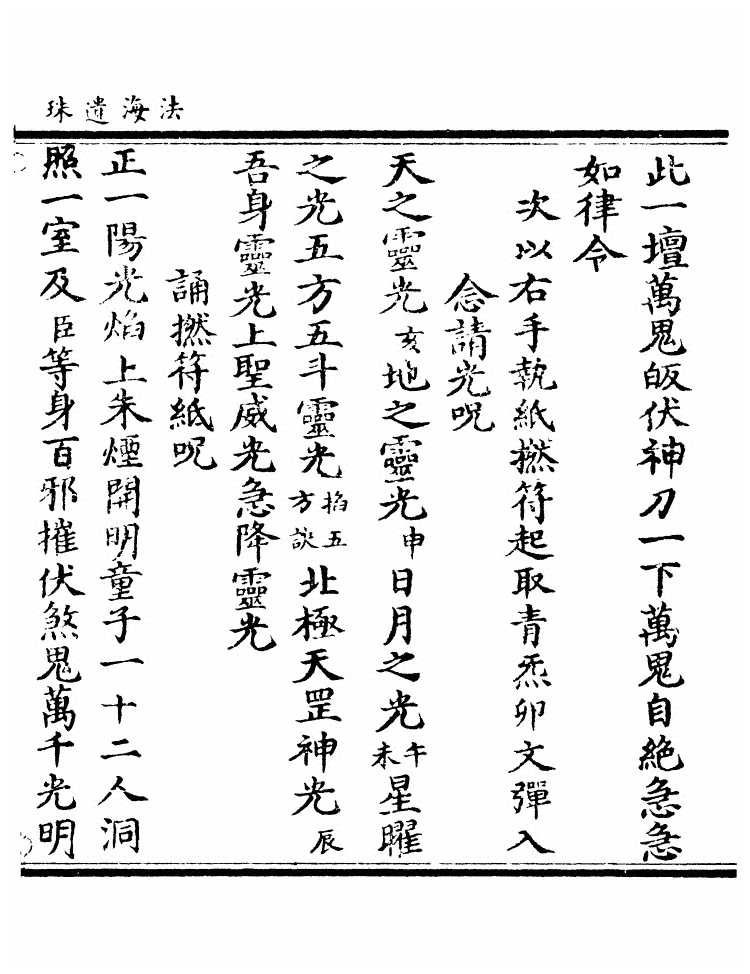 法海遺珠
此一壇萬鬼皈伏神刀一下萬鬼自絕急急
如律令
次以右手執紙撚符起取青炁卯文彈入
念請光呪
天之靈光亥地之靈光申日月之光午未星曜
之光五方五斗靈光掐五方訣北極天罡神光辰
吾身靈光上聖威光急降靈光
誦撚符紙呪
正一陽光焰上朱煙開明童子一十二人洞
照一室及臣等身百邪摧伏煞鬼萬千光明